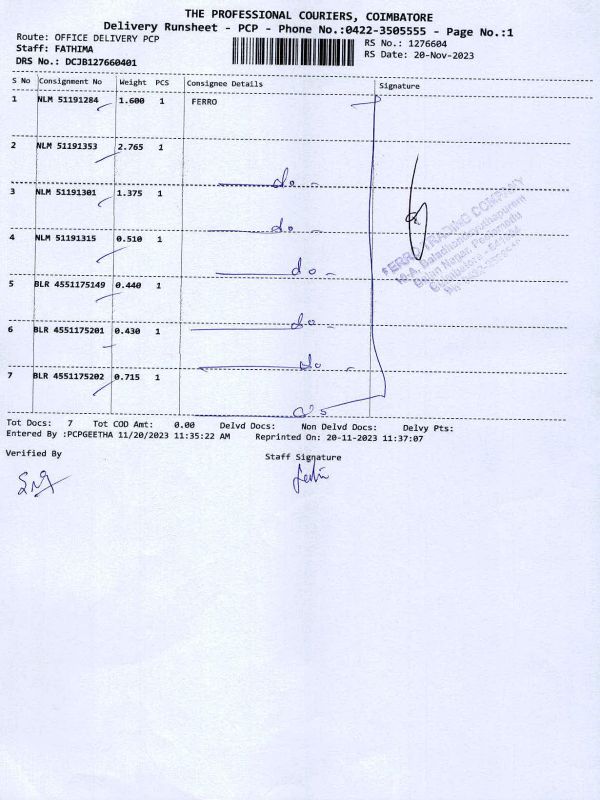 THE PROFESSIONAL COURIERS, COIMBATORE
Delivery Runsheet - PCP - Phone No.:0422-3505555 - Page No.:1
Route: OFFICE DELIVERY PCP
RS No.: 1276604
Staff: FATHIMA
RS Date: 20-Nov-2023
DRS No.: DCJB127660401
S No Consignment No Weight PCS Consignee Details Signature
1 NLM 51191284 1.600 1 FERRO
2 NLM 51191353 2.765 1
do
3 NLM 51191301 1.375 1
do
4 NLM 51191315 0.510 1
do
5 BLR 4551175149 0.440 1
do
6 BLR 4551175201 0.430 1
do
7 BLR 4551175202 0.715 1
FERRO TRADING COMPANY
Tot Docs: 7 Tot COD Amt: 0.00 Delvd Docs: Non Delvd Docs: Delvy Pts:
Entered By :PCPGEETHA 11/20/2023 11:35:22 AM Reprinted On: 20-11-2023 11:37:07
Verified By Staff Signature